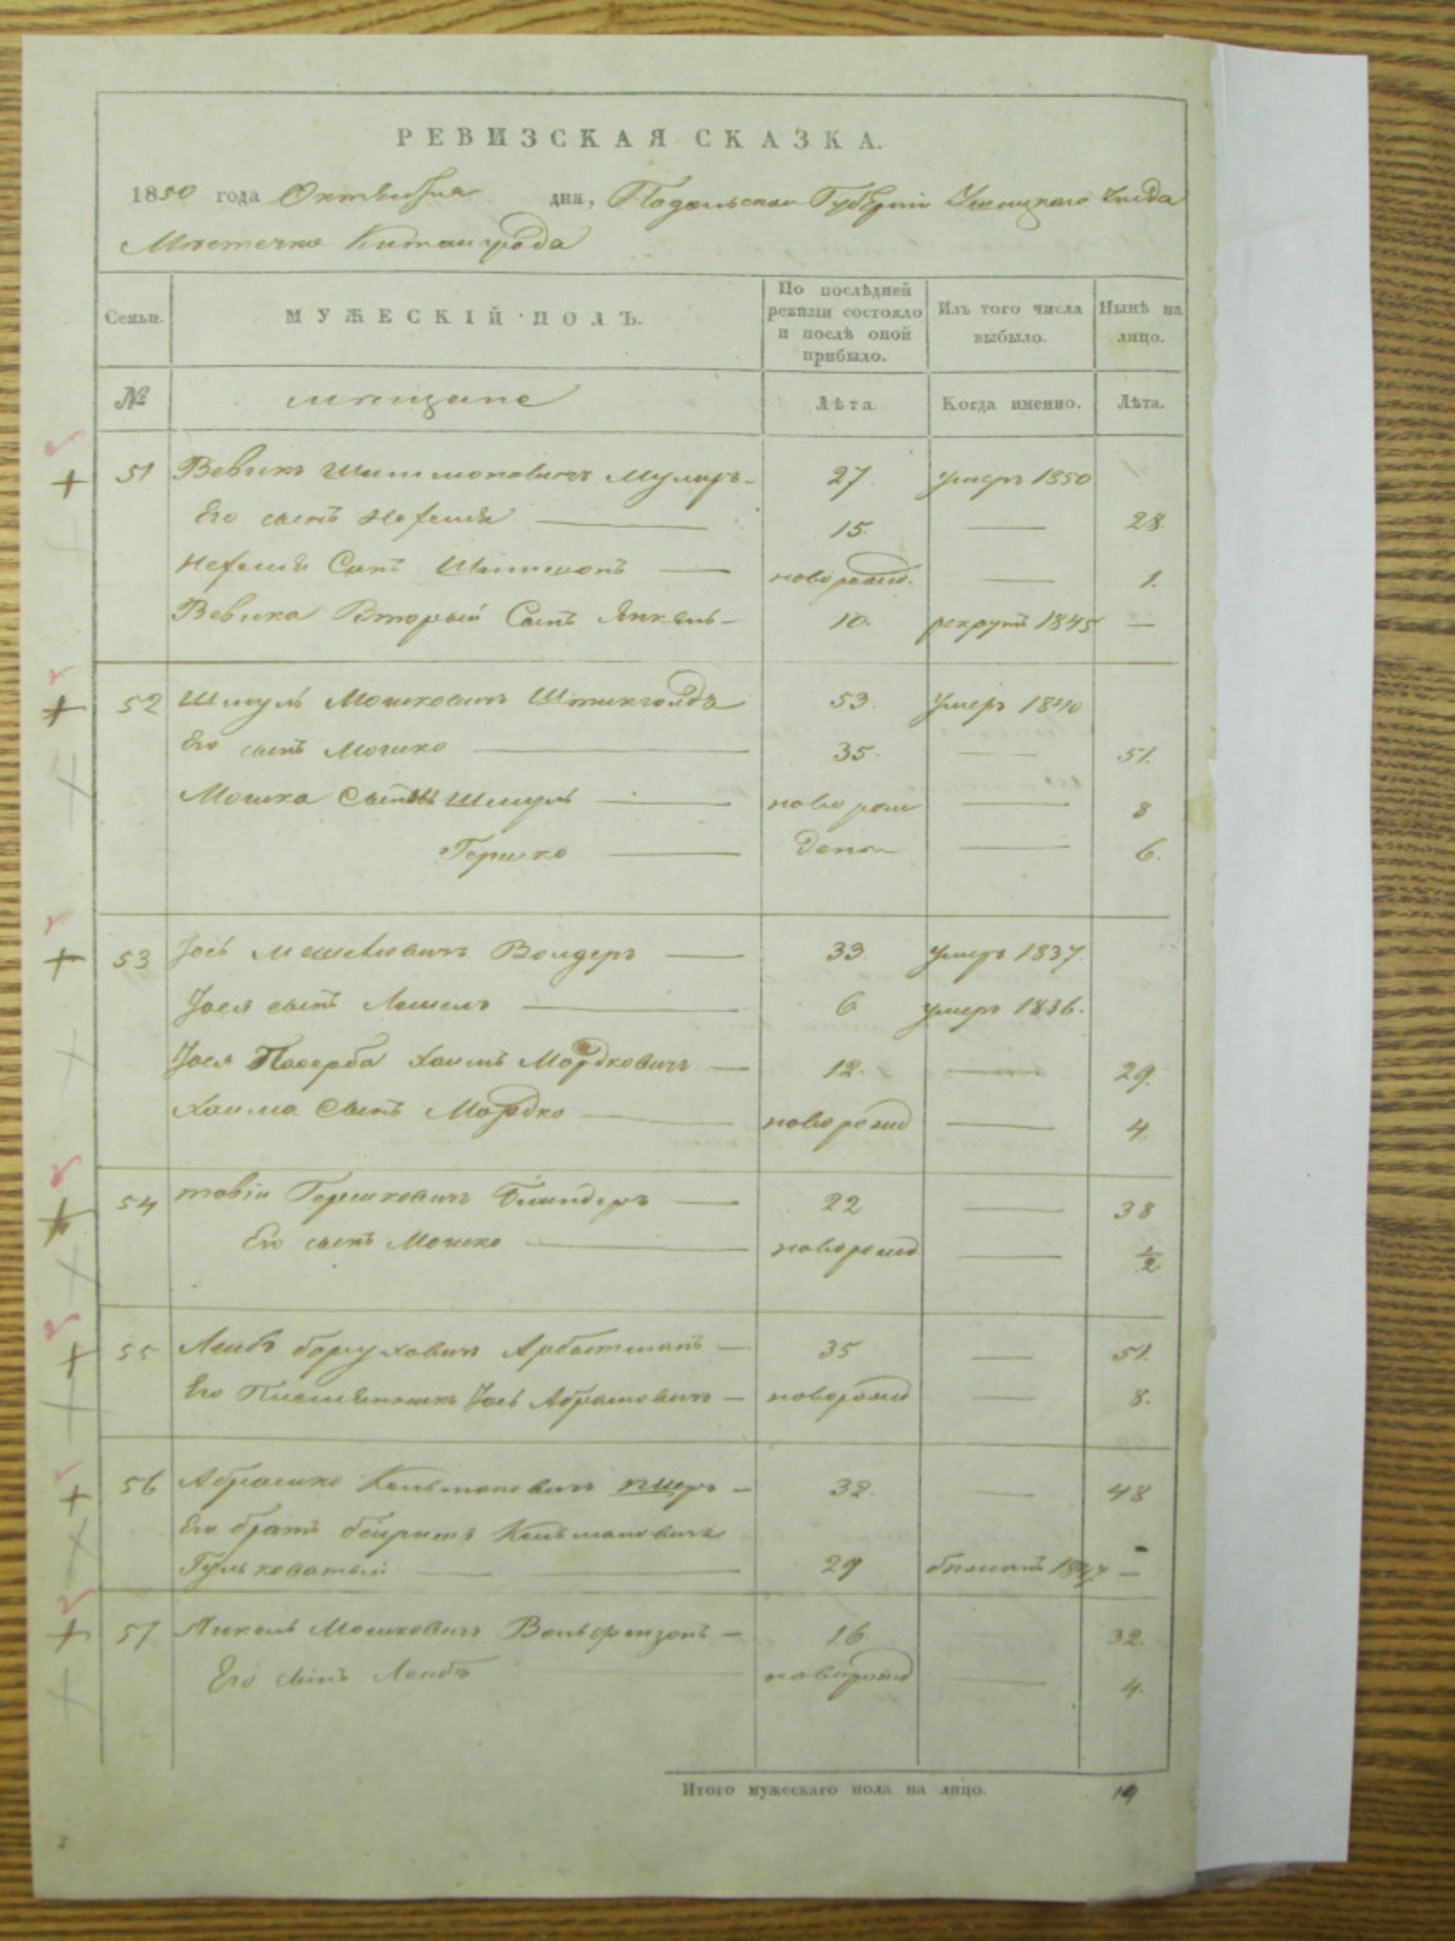 РЕВИЗСКАЯ СКАЗКА.
1850 года Октября дня, Подольской Губерніи Ушицкаго Уѣзда
Мѣстечка Китайгрода
Семьи. МУЖЕСКІЙ ПОЛЪ. По послѣдней ревизіи состояло и послѣ оной прибыло. Изъ того числа выбыло. Нынѣ на лицо.
№ мѣщане Лѣта. Когда именно. Лѣта.
51 Вевикъ Шимшоновичъ Муляръ 27 умеръ 1850
Его сынъ Нефтули — 15 — 28
Сынъ Шимшонъ — новорожд. — 1.
Вевика Вторый Сынъ Янкель — 10. рекрутъ 1845 —
52 Шмуль Мошковичъ 53. умеръ 1840
Его сынъ Мошко — 35. — 51.
Мошка Сыны Шмуль — новорож — 8
Гершко — денои — 6.
53 Іось Волдеръ — 33. умеръ 1837.
Іося сынъ — 6 умеръ 1836.
Іося Пасерба Хаимъ Мордковичъ — 12. — 29.
Хаима Сынъ Мордко — новорожд — 4.
54 Товій Гершковичъ — 22 — 38
Его сынъ Мошко — новорожд — 1/2
55 Лейбъ Боруховичъ Арбетманъ — 35 — 51.
Его Племянникъ Іось Абрамовичъ — новорожд — 8.
56 Абрамко Кельмановичъ — 32. — 48
Его братъ Кельмановичъ
Гульковатый — 29 бѣжалъ 1847 —
57 Янкель Мошковичъ Вольфензонъ — 16. 32.
Его сынъ Лейбъ новорожд — 4.
Итого мужескаго пола на лицо.